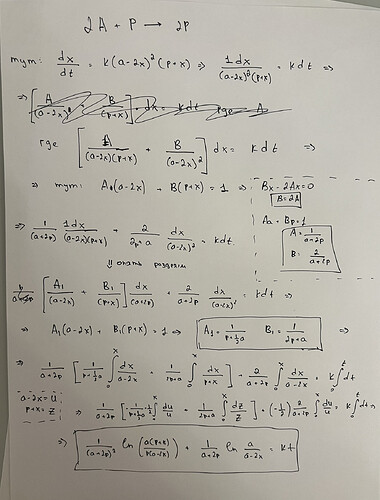 2A + P → 2P
тут: dx/dt = k(a-2x)²(p+x) ⇒ 1dx/((a-2x)²(p+x)) = kdt ⇒
⇒ [A/(a-2x)² + B/(p+x)] · dx = kdt где A
где [A/((a-2x)(p+x)) + B/(a-2x)²] dx = kdt ⇒
⇒ тут: A(a-2x) + B(p+x) = 1 ⇒
Bx - 2Ax = 0
B = 2A
Aa + Bp = 1
A = 1/(a+2p)
B = 2/(a+2p)
⇒ 1/(a+2p) 1dx/((a-2x)(p+x)) + 2/(2p+a) dx/(a-2x)² = kdt.
и опять разделим
[A₁/(a-2x) + B₁/(p+x)] dx/(a+2p) + 2/(a+2p) dx/(a-2x)² = kdt ⇒
⇒ A₁(a-2x) + B₁(p+x) = 1 ⇒ A₁ = 1/(p+½a) B₁ = 1/(2p+a) ⇒
⇒ 1/(a+2p) [1/(p+½a) ∫₀ˣ dx/(a-2x) + 1/(2p+a) ∫₀ˣ dx/(p+x)] + 2/(a+2p) ∫₀ˣ dx/(a-2x) = k∫₀ᵗdt
a-2x = u
p+x = z
⇒ 1/(a+2p) [-1/(p+½a) · ½ ∫₀ˣ du/u + 1/(2p+a) ∫₀ˣ dz/z] + (-½) 2/(a+2p) ∫₀ˣ du/u = k∫₀ᵗdt
⇒ 1/(a+2p)² ln(a(p+x)/p(a-2x)) + 1/(a+2p) ln a/(a-2x) = kt